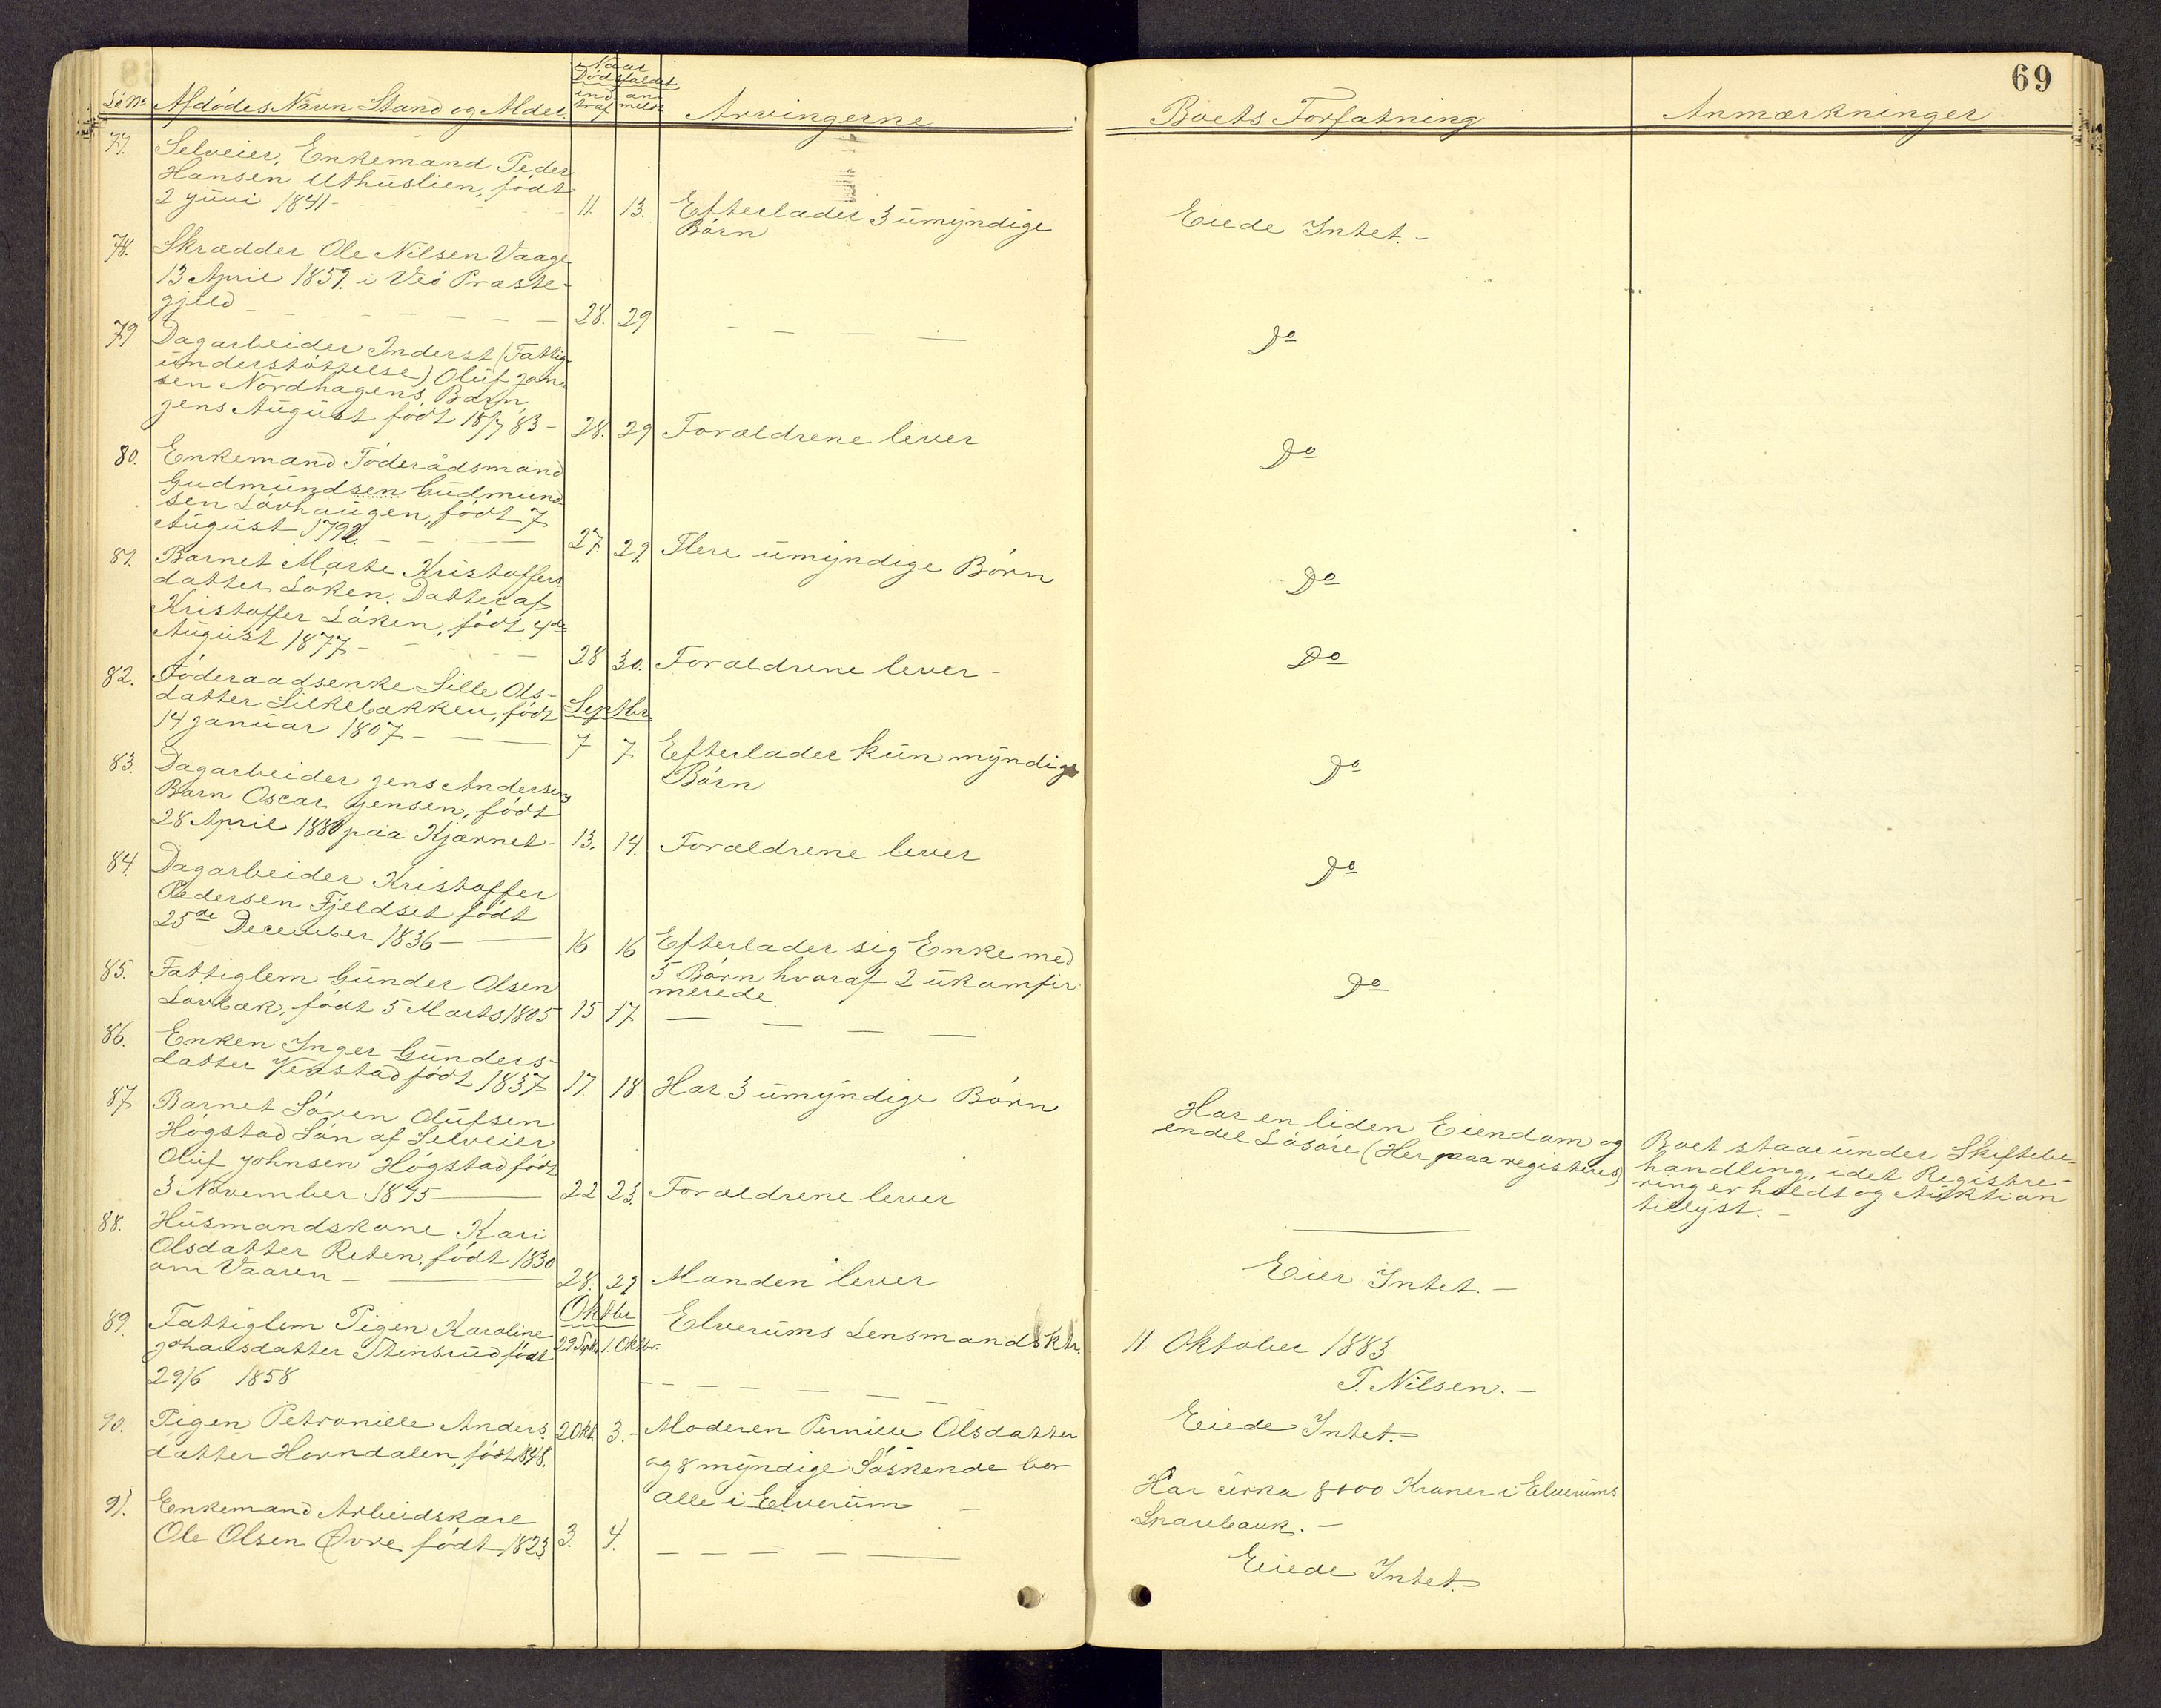 69
Lø No Afdødes Navn, Stand og Alder.
Naar Dødsfaldet
indtraf
anmeldt
Arvingerne
Boets Forfatning
Anmærkninger
77. Selveier, Enkemand Peder
Hansen Uthuslien, født
2 Juni 1841 - 11. 13. Efterlader 3 umyndige
Børn
Eiede Intet. -
78. Skrædder Ole Nilsen Vaage
13 April 1859. i Veø Præste-
gjeld - 28. 29 - - - -
Do
79 Dagarbeider Inderst (Fattig-
understøttelse) Oluf Jan-
sen Nordhagens Barn,
Jens August født 18/7 83 - 28. 29 Forældrene lever
Do
80. Enkemand Føderådsmand
Gudmundsen Gudmund-
sen Løvhaugen, født 7
August 1792. - - - 27. 29. Flere umyndige Børn
Do
81. Barnet Marte Kristoffers-
datter Løken. Datter af
Kristoffer Løken, født 4de
August 1877 - - - 28 30. Forældrene lever -
Do
82. Føderaadsenke Sille Ols-
datter Silkebakken, født
Septbr
14 Januar 1807 - - 7 7 Efterlader kun myndige
Børn
Do
83. Dagarbeider Jens Andersens
Barn Oscar Jensen, født
28 April 1880 paa Kjærnet - 13. 14. Forældrene lever
Do
84. Dagarbeider Kristoffer
Pedersen Fjeldset født
25de December 1836 - - 16 16 Efterlader sig Enke med
5 Børn hvoraf 2 ukomfir
merede.
Do
85. Fattiglem Gunder Olsen
Løvbæk, født 5 Marts 1805 15 17. - - - -
86. Enken Inger Gunders-
datter Vestad født 1837 17. 18 Har 3 umyndige Børn
Har en liden Eiendom og
endel Løsøre (Her maa registeres)
Boet staar under Skiftebe-
handling, idet Registre-
ring er holdt og Auktion
tillyst. -
87. Barnet Søren Olufsen
Høgstad Søn af Selveier
Oluf Johnsen Høgstad født
3 November 1875 - 22 23. Forældrene lever
88. Husmandskone Kari
Olsdatter Reten, født 1830
om Vaaren - - 28. 29 Manden lever
Eier Intet. -
Oktbr
89. Fattiglem Pigen Karoline
Johansdatter født
29/6 1858
29 Septbr 1. Oktbr.
Elverums Lensmandsktr. 11 Oktober 1883
P. Nilsen. -
- - - - -
Eiede Intet. -
90. Pigen Petronille Anders-
datter Horndalen, født 1848.
2 Okt. 3. - Moderen Pernille Olsdatter
og 8 myndige Søskende bor
alle i Elverum -
Har cirka 8000 Kroner i Elverums
Sparebank. -
91. Enkemand Arbeidskare
Ole Olsen Øvre, født 1823 3. 4. - - - -
Eiede Intet. -